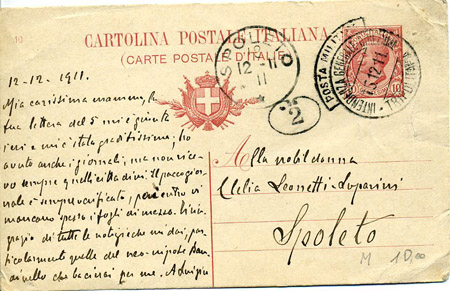 10
CARTOLINA POSTALE ITALIANA
(CARTE POSTALE D'ITALIE)
SPOLETO
12-11
11
POSTA MILITARE
INTENDENZA GENERALE
15 12 11
10
10
2
12-12-1911.
Mia carissima mamma, la
tua lettera del 5 mi è giunta
ieri e mi è stata graditissima; ho
avuto anche i giornali, ma non rice-
vo sempre quelli città di
nale è sempre verificato, entro vi
mancano spesso i fogli di mezzo. Ti rin-
grazio di tutte le notizie che mi dai, par-
ticolarmente quelle del neo-nipote
che bacerai per me. A
Alla nobil donna
Clelia Leonetti-Luparini
Spoleto
M 10,00